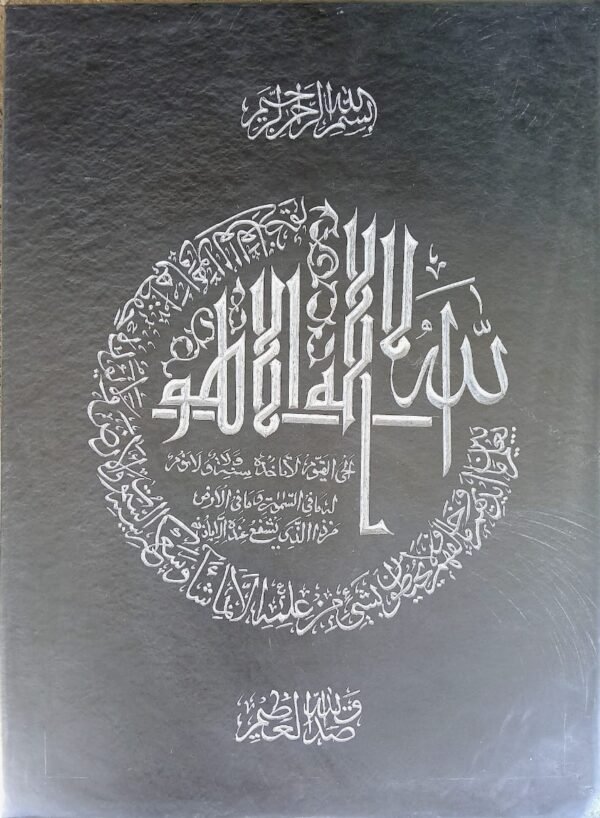 بسم الله الرحمن الرحيم
الله لا إله إلا هو
الحي القيوم لا تأخذه سنة ولا نوم
له ما في السموت وما في الأرض
من ذا الذي يشفع عنده إلا بإذنه
يعلم ما بين أيديهم وما خلفهم ولا يحيطون بشيء من علمه إلا بما شاء وسع كرسيه السموت والأرض ولا
صدق الله العظيم